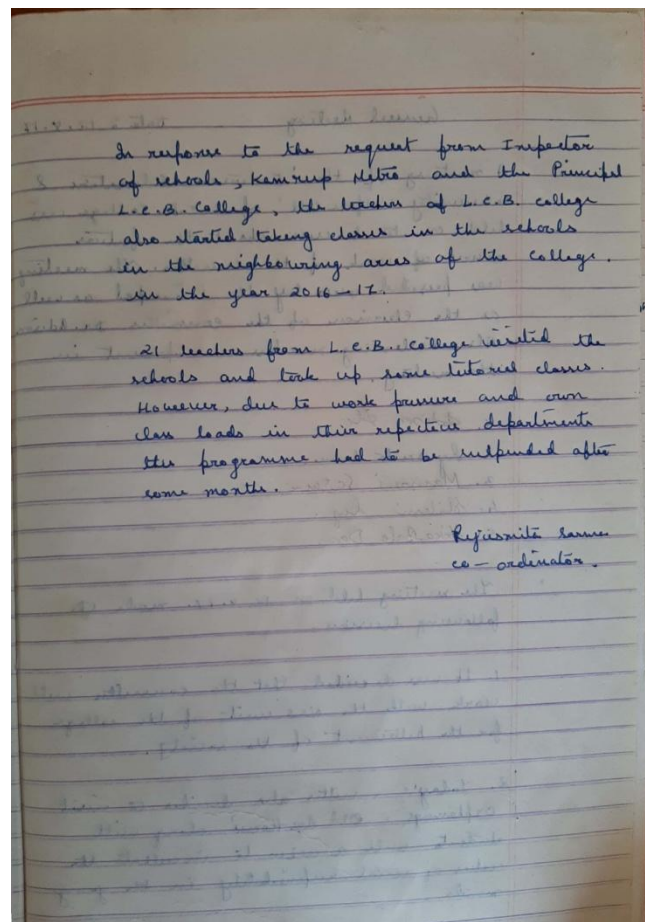 In response to the request from Inspector
of schools, Kamrup Metro and the Principal
L.C.B. College, the teachers of L.C.B. college
also started taking classes in the schools
in the neighbouring areas of the college.
in the year 2016-17.
21 teachers from L.C.B. College visited the
schools and took up some tutorial classes.
However, due to work pressure and own
class loads in their respective departments
the programme had to be suspended after
some months.
Sarma
co-ordinator.